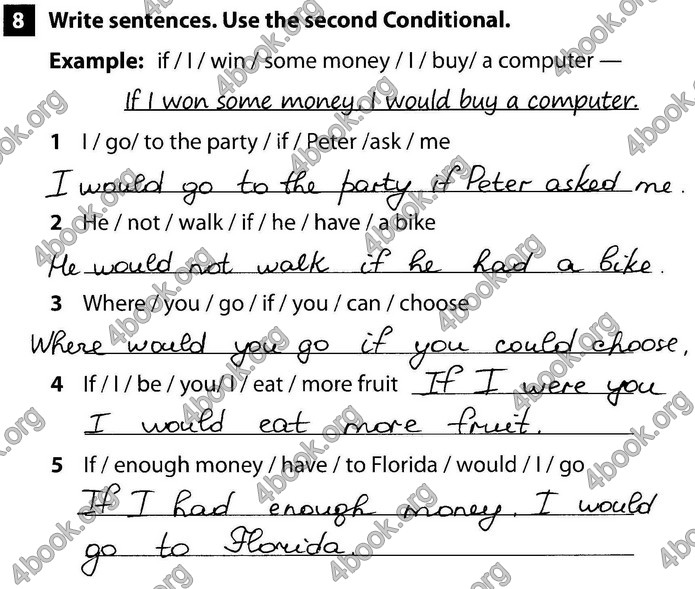 8 Write sentences. Use the second Conditional.
Example: if / I / win / some money / I / buy/ a computer —
If I won some money, I would buy a computer.
1 I / go/ to the party / if / Peter /ask / me
I would go to the party if Peter asked me.
2 He / not / walk / if / he / have / a bike
He would not walk if he had a bike.
3 Where / you / go / if / you / can / choose
Where would you go if you could choose,
4 If / I / be / you/ I / eat / more fruit If I were you
I would eat more fruit.
5 If / enough money / have / to Florida / would / I / go
If I had enough money, I would
go to Florida.
4book.org